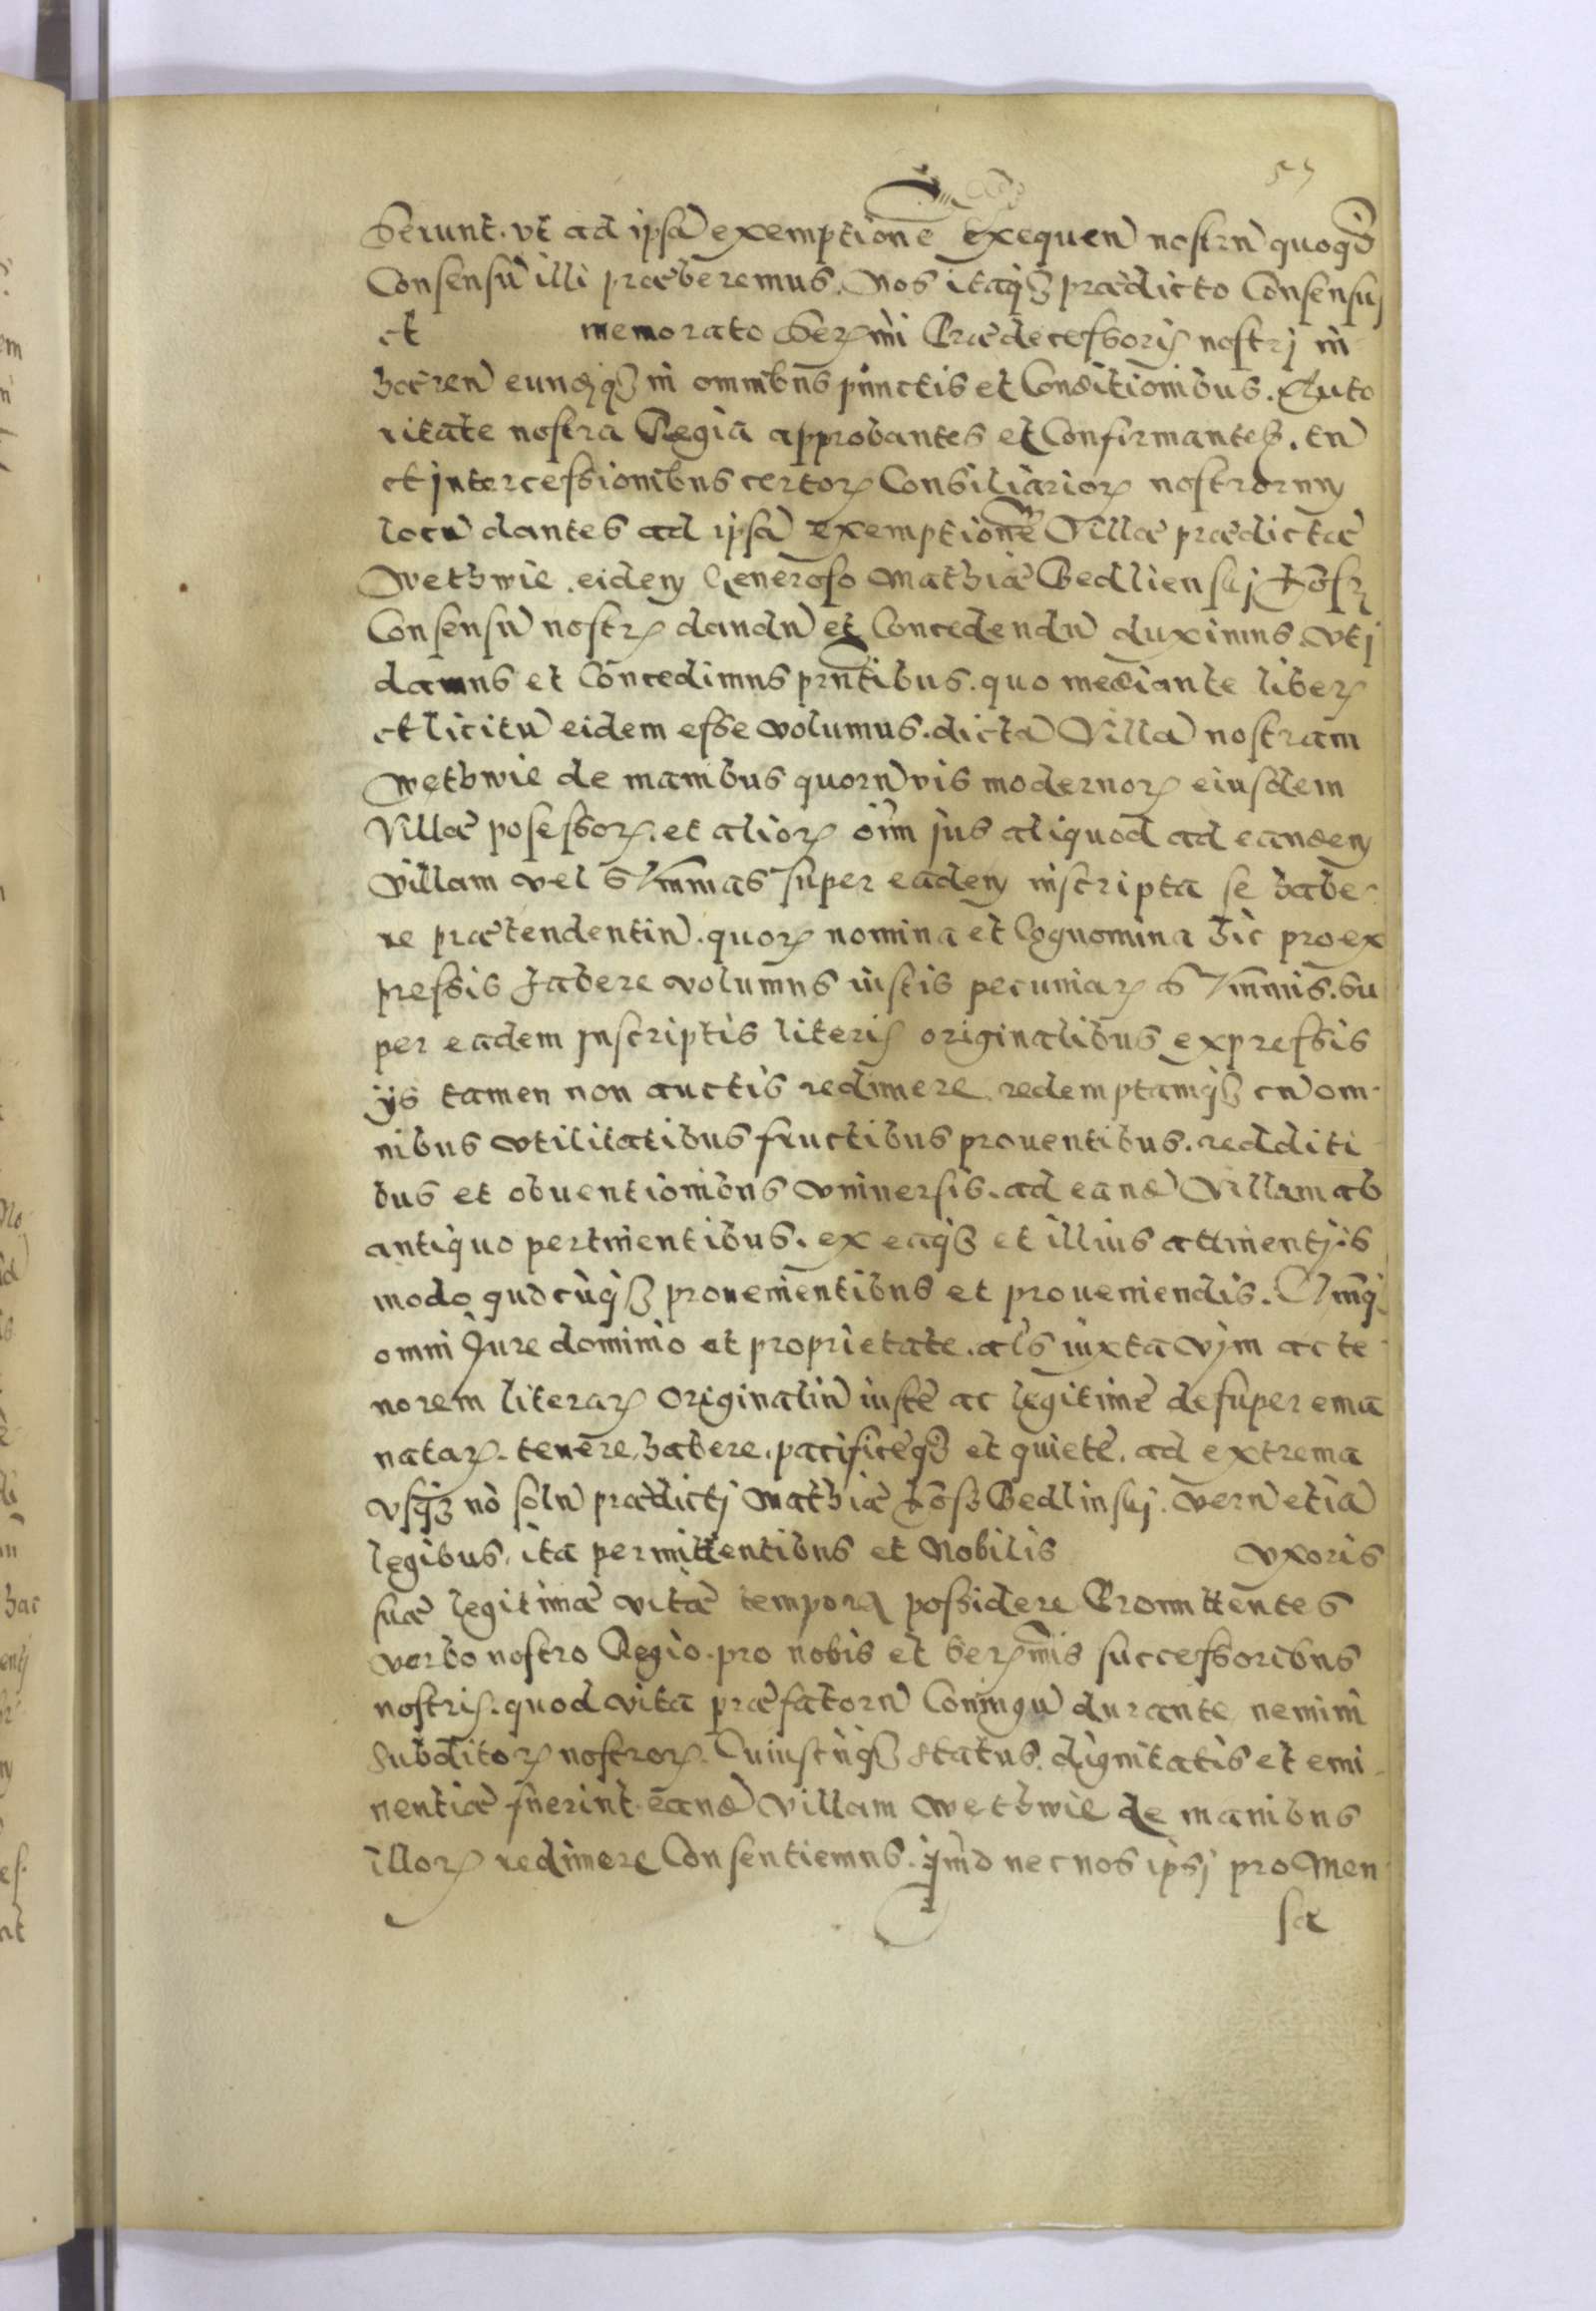 55
serunt. vt ad ipsã exemptionẽ Exequen̄ nostrũ quoqȝ
Consensũ illi præberemus. Nos itaqȝ prædicto Consensuj
et memorato Serꝫmi Prædecessoris nostrj in
hac ren̄ eundqȝ in omnibus punctis et Conditionibus. Auto
ritate nostra Regia approbantes et Confirmantes. tũ
et intercessionibus certorꝫ Consiliariorꝫ nostrorum
locũ dantes ad ipsã exemptionẽ Villæ prædictæ
Wethwie. eidem Generoso Mathiæ Bedlienskj
Consensũ nostrꝫ dandũ et Concedendũ duximus. vtj
damus et Concedimus prñtibus. quo mediante liberꝫ
et licitũ eidem esse volumus. dictã Villã nostram
Wethwie de manibus quorũvis modernorꝫ eiusdem
Villæ posessorꝫ. et aliorꝫ oĩm jus aliquod ad eandem
Villam vel sum̃mas super eadem inscripta se habe-
re prætendentiũ. quorꝫ nomina et Cognomina hic pro ex
pressis habere volumus iustis pecuniarꝫ sum̃mis. su
per eadem Inscriptis literis originalibus expressis
ijs tamen non auctis redimere. redemptamqȝ cũ om-
nibus vtilitatibus fructibus prouentibus. redditi
bus et obuentionibus vniuersis. ad eand̃ Villam ab
antiquo pertinentibus. ex eaqȝ et illius attinentijs
modo quocũqȝ prouenientibus et proueniendis. Cumq̃
omni Jure dominio et proprietate. als iuxta vim ac te-
norem literarꝫ Originaliũ iustè ac legitimè desuper ema
natarꝫ. tenere, habere, pacificèqȝ et quietè. ad extrema
vsqȝ nõ solũ prædictj Mathiæ Bedlinskj. verũ etiã
legibus, ita permittentibus et Nobilis vxoris
suæ legitimæ vitæ tempora possidere Promittentes
verbo nostro Regio. pro nobis et Serꝫmis successoribus
nostris. quod vita præfatorũ Coniugũ durante nemini
Subditorꝫ nostrorꝫ. Cuiuscũqȝ status. dignitatis et emi-
nentiæ fuerint eand̃ Villam Wethwie de manibus
illorꝫ redimere Consentiemus. imò nec nos ipsj pro Men
sa